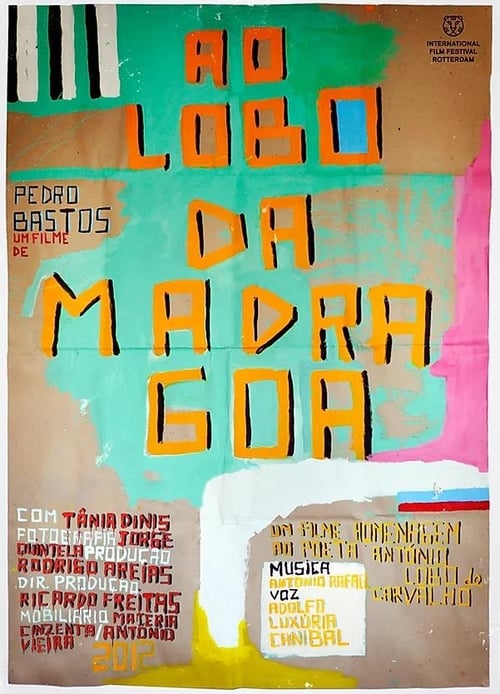 INTERNATIONAL
FILM FESTIVAL
ROTTERDAM
AO
LOBO
DA
MADRA
GOA
PEDRO
BASTOS
UM FILME
DE
COM TÂNIA DINIS
FOTOGRAFIA JORGE
QUINTELA PRODUÇÃO
RODRIGO AREIAS
DIR. PRODUÇÃO
RICARDO FREITAS
MOBILIÁRIO MACERIA
CINZENTA / ANTÓNIO
VIEIRA
2012
UM FILME HOMENAGEM
AO POETA ANTÓNIO
LOBO de
CARVALHO
MUSICA
ANTONIO RAFAEL
VOZ
ADOLFO
LUXÚRIA
CANIBAL